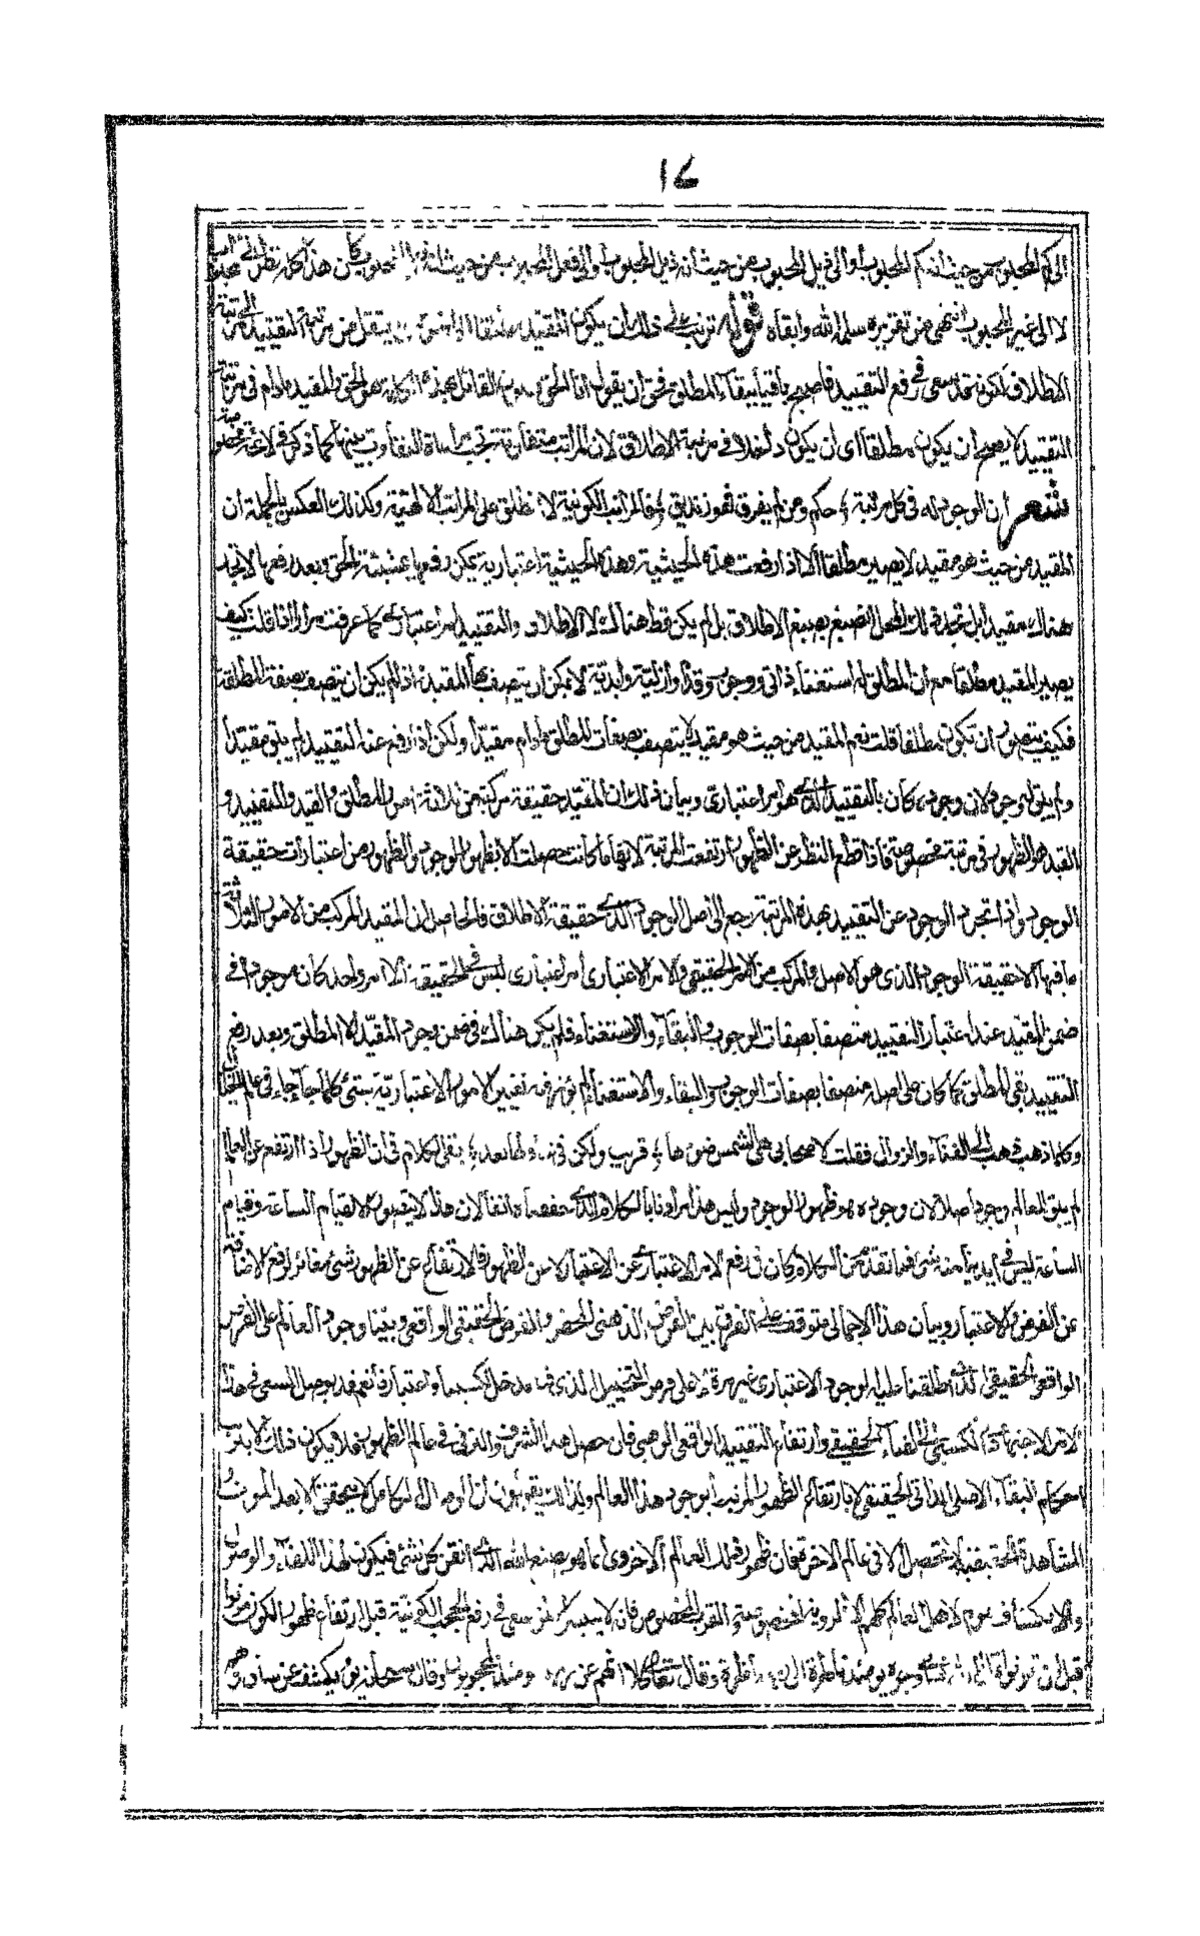 ١٤
الى كم المحبوب من حيث انه كم المحبوب أو الى ذيل المحبوب من حيث انه ذيل المحبوب أو الى فعل المحبوب من حيث انه فعل المحبوب كان هذا كله نظرا الى محبوب
لا الى غير المحبوب انتهى من تقريره سلمه الله وابقاه قوله ترتب على ذلك ان يكون المقيد مطلقا ينتقل من مرتبة التقييد الى مرتبة
الاطلاق لكونه قد سعى في رفع التقييد فاصبح باقيا ببقاء المطلق فحق ان يقول انا الحق القائل بهذه هو الحق والمقيد مادام في مرتبة
التقييد لا يصح ان يكون مطلقا اى ان يكون داخلا في مرتبة الاطلاق لان المراتب متفاوتة تجب مراعاة التفاوت بينها كما ذكر في
شعر ان الوجود له في كل مرتبة ؛ حكم ومن لم يفرق فهو زنديق ؛ فالمراتب الكونية لا تطلق على المراتب الالهية وكذلك العكس بالجملة ان
المقيد من حيث هو مقيد لا يصير مطلقا الا اذا رفعت هذه الحيثية وهذه الحيثية اعتبارية يمكن رفعها وبعد رفعها لا تجد
هناك مقيدا بل تجد ذلك المحل انصبغ بصبغ الاطلاق بل لم يكن قط هناك الا الاطلاق والتقييد امر اعتبارى كما عرفت مرارا اذا قلت كيف
يصير المقيد مطلقا مع ان المطلق له استغناء ذاتى ووجوب وقدم وازلية وابدية لا يمكن ان يتصف بها المقيد اذ لم يكن ان يتصف بصفة المطلق
فكيف يتصور ان تكون مطلقا قلت نعم المقيد من حيث هو مقيد لا يتصف بصفات المطلق مادام مقيدا ولكن اذا رفع عنه التقييد لم يبق مقيدا
ولم يبق له وجود لان وجوده كان بالتقييد الذى هو امر اعتبارى وبيان ذلك ان المقيد حقيقة مركبة من ثلاثة امور المطلق والقيد والتقييد و
القيد هو الظهور في مرتبة مخصوصة فاذا قطع النظر عن الظهور ارتفعت المرتبة لانها ما كانت حصلت الا بظهور الوجود والظهور من اعتبارات حقيقة
الوجود واذا تجرد الوجود عن التقييد بهذه المرتبة رجع الى اصل الوجود الذى حقيقة الاطلاق فالحاصل ان المقيد المركب من الامور الثلاثة
ما فيها الا حقيقة الوجود الذى هو الاصل والمركب من الامر الحقيقى والامر الاعتبارى امر اعتبارى ليس في الحقيقة الا امر واحد كان موجودا في
ضمن المقيد عند اعتبار التقييد متصفا بصفات الوجوب والبقاء والاستغناء فلم يكن هناك في ضمن وجود المقيد الا المطلق وبعد رفع
التقييد بقى المطلق كما كان على اصله متصفا بصفات الوجوب والبقاء والاستغناء لم تؤثر فيه تغيير الامور الاعتبارية بشئ كلما جاء جاء في عالم
وكلما ذهب ذهب الى الفناء والزوال فقلت لاصحابى هى الشمس ضوءها ؛ قريب ولكن في تناولها بعد ؛ بقى الكلام في ان الظهور اذا ارتفع عن العالم
لم يبق للعالم وجود اصلا لان وجوده هو ظهور الوجود وليس هذا مرادنا بالكلام الذى حققناه انفا لان هذا لا يتصور الا بقيام الساعة وقيام
الساعة ليس في ايدينا منه شئ فما تقدم من الكلام كان في رفع الامر الاعتبارى عن الاعتبار لا من الظهور فالارتفاع عن الظهور شئ مغائر لرفع الاضافة
عن الفرض والاعتبار وبيان هذا الاجمال متوقف على الفرق بين الفرض الذهنى المحض والفرض الحقيقى الواقعى وبينا وجود العالم على الفرض
الواقعى الحقيقى الذى اطلقنا عليه الوجود الاعتبارى غير مرة لا على فرض التخييل الذى فيه مدخل لكسبنا واعتبارنا نعم قد يوصل السعى في هذا
الامر الاجتهادى الكسبى الى الفناء الحقيقى وارتفاع التقييد الواقعى الوهبى فان حصل هذا الشرف والترقى في عالم الظهور فلا يكون ذلك الا بترتب
احكام البقاء الاصلى الذاتى الحقيقى لا بارتفاع الظهور المرتب بوجود هذا العالم ولذلك يقولون ان الوصال الكامل لا يتحقق الا بعد الموت و
المشاهدة الحقيقية لا تحصل الا في عالم الاخرة فان ظهور ذلك العالم الاخروى انما هو بصنع الله الذى اتقن كل شئ فيكون لهذا اللقاء والوصول
والانكشاف عموم لاهل العالم كلهم الا ان الروية مختصة والقرب المخصوص فان لا يتيسر الا لمن سعى في رفع الحجب الكونية قبل ارتفاع ظهور الكون موتوا
قبل ان تموتوا قال وجوه يومئذ ناظرة الى ربها ناظرة وقال تعالى كلا انهم عن ربهم يومئذ لمحجوبون وقال سبحانه يوم يكشف عن ساق